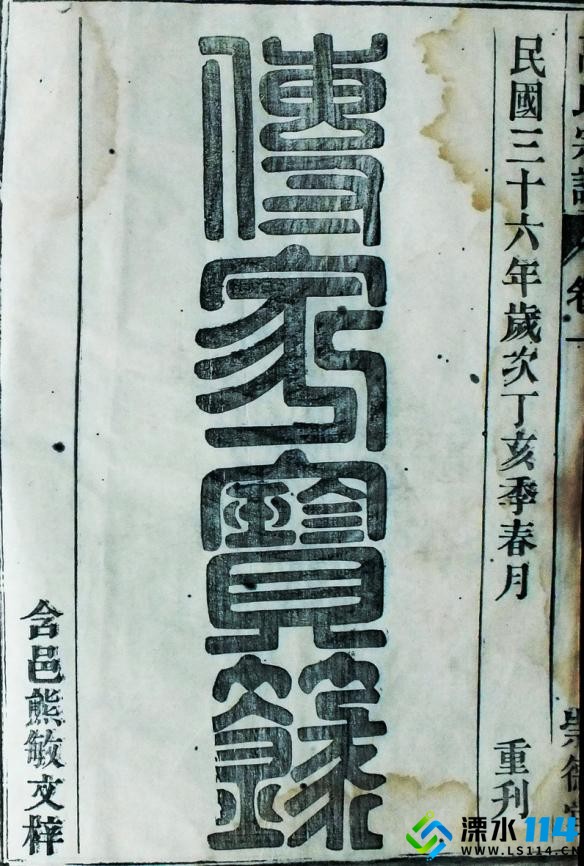 民國三十六年歲次丁亥季春月
重刊
傳家寶籙
含邑熊敏文梓
溧水114
WWW.LS114.CN